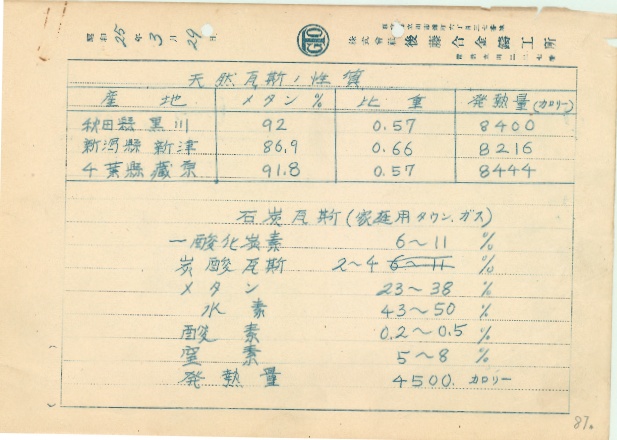 昭和25年3月29日
GTO
株式会社 後藤合金鋳工所
天然瓦斯ノ性質
産地 メタン % 比重 発熱量(カロリー)
秋田縣 黒川 92 0.57 8400
新潟縣 新津 86.9 0.66 8216
千葉縣 茂原 91.8 0.57 8444
石炭瓦斯(家庭用タウン.ガス)
一酸化炭素 6~11 %
炭酸瓦斯 2~4 6~11 %
メタン 23~38 %
水素 43~50 %
酸素 0.2~0.5 %
窒素 5~8 %
発熱量 4500. カロリー
87.